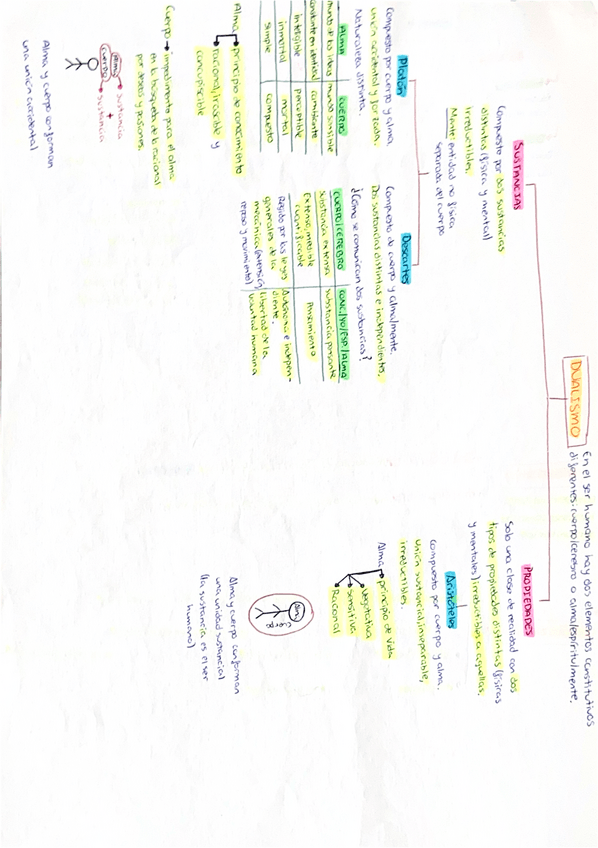 DUALISMO
En el ser humano hay dos elementos constitutivos
diferentes: cuerpo/cerebro o alma/espíritu/mente.
SUSTANCIAS
Compuesto por dos sustancias
distintas (física y mental)
irreductibles.
Mente: entidad no física
separada del cuerpo
Platón
Compuesto por cuerpo y alma
unión accidental y forzada.
Naturaleza distinta.
ALMA CUERPO
mundo de las ideas mundo sensible
constante en identidad cambiante
inteligible perceptible
inmortal mortal
simple compuesto
Alma principio de conocimiento
racional, irascible y
concupiscible
Cuerpo → impedimento para el alma
en la búsqueda de lo racional
por deseos y pasiones.
alma → sustancia
+
cuerpo → sustancia
Alma y cuerpo conforman
una unión accidental
Descartes
Compuesto de cuerpo y alma/mente.
Dos sustancias distintas e independientes.
¿Cómo se comunican dos sustancias?
CUERPO/CEREBRO CONC./YO/ESP./ALMA
substancia extensa substancia pensante
Extenso, medible Pensamiento
cuantificable
Regido por las leyes Autónomo e indepen-
generales de la diente.
mecánica (extensión, libertad de la
reposo y movimiento) voluntad humana
PROPIEDADES
Solo una clase de realidad con dos
tipos de propiedades distintas (físicas
y mentales) irreductibles a aquellas.
Aristóteles
Compuesto por cuerpo y alma.
Unión sustancial, inseparable,
irreductibles.
Alma principio de vida
vegetativa
sensitiva
Racional
Alma y cuerpo conforman
una unidad sustancial
(la sustancia es el ser
humano)